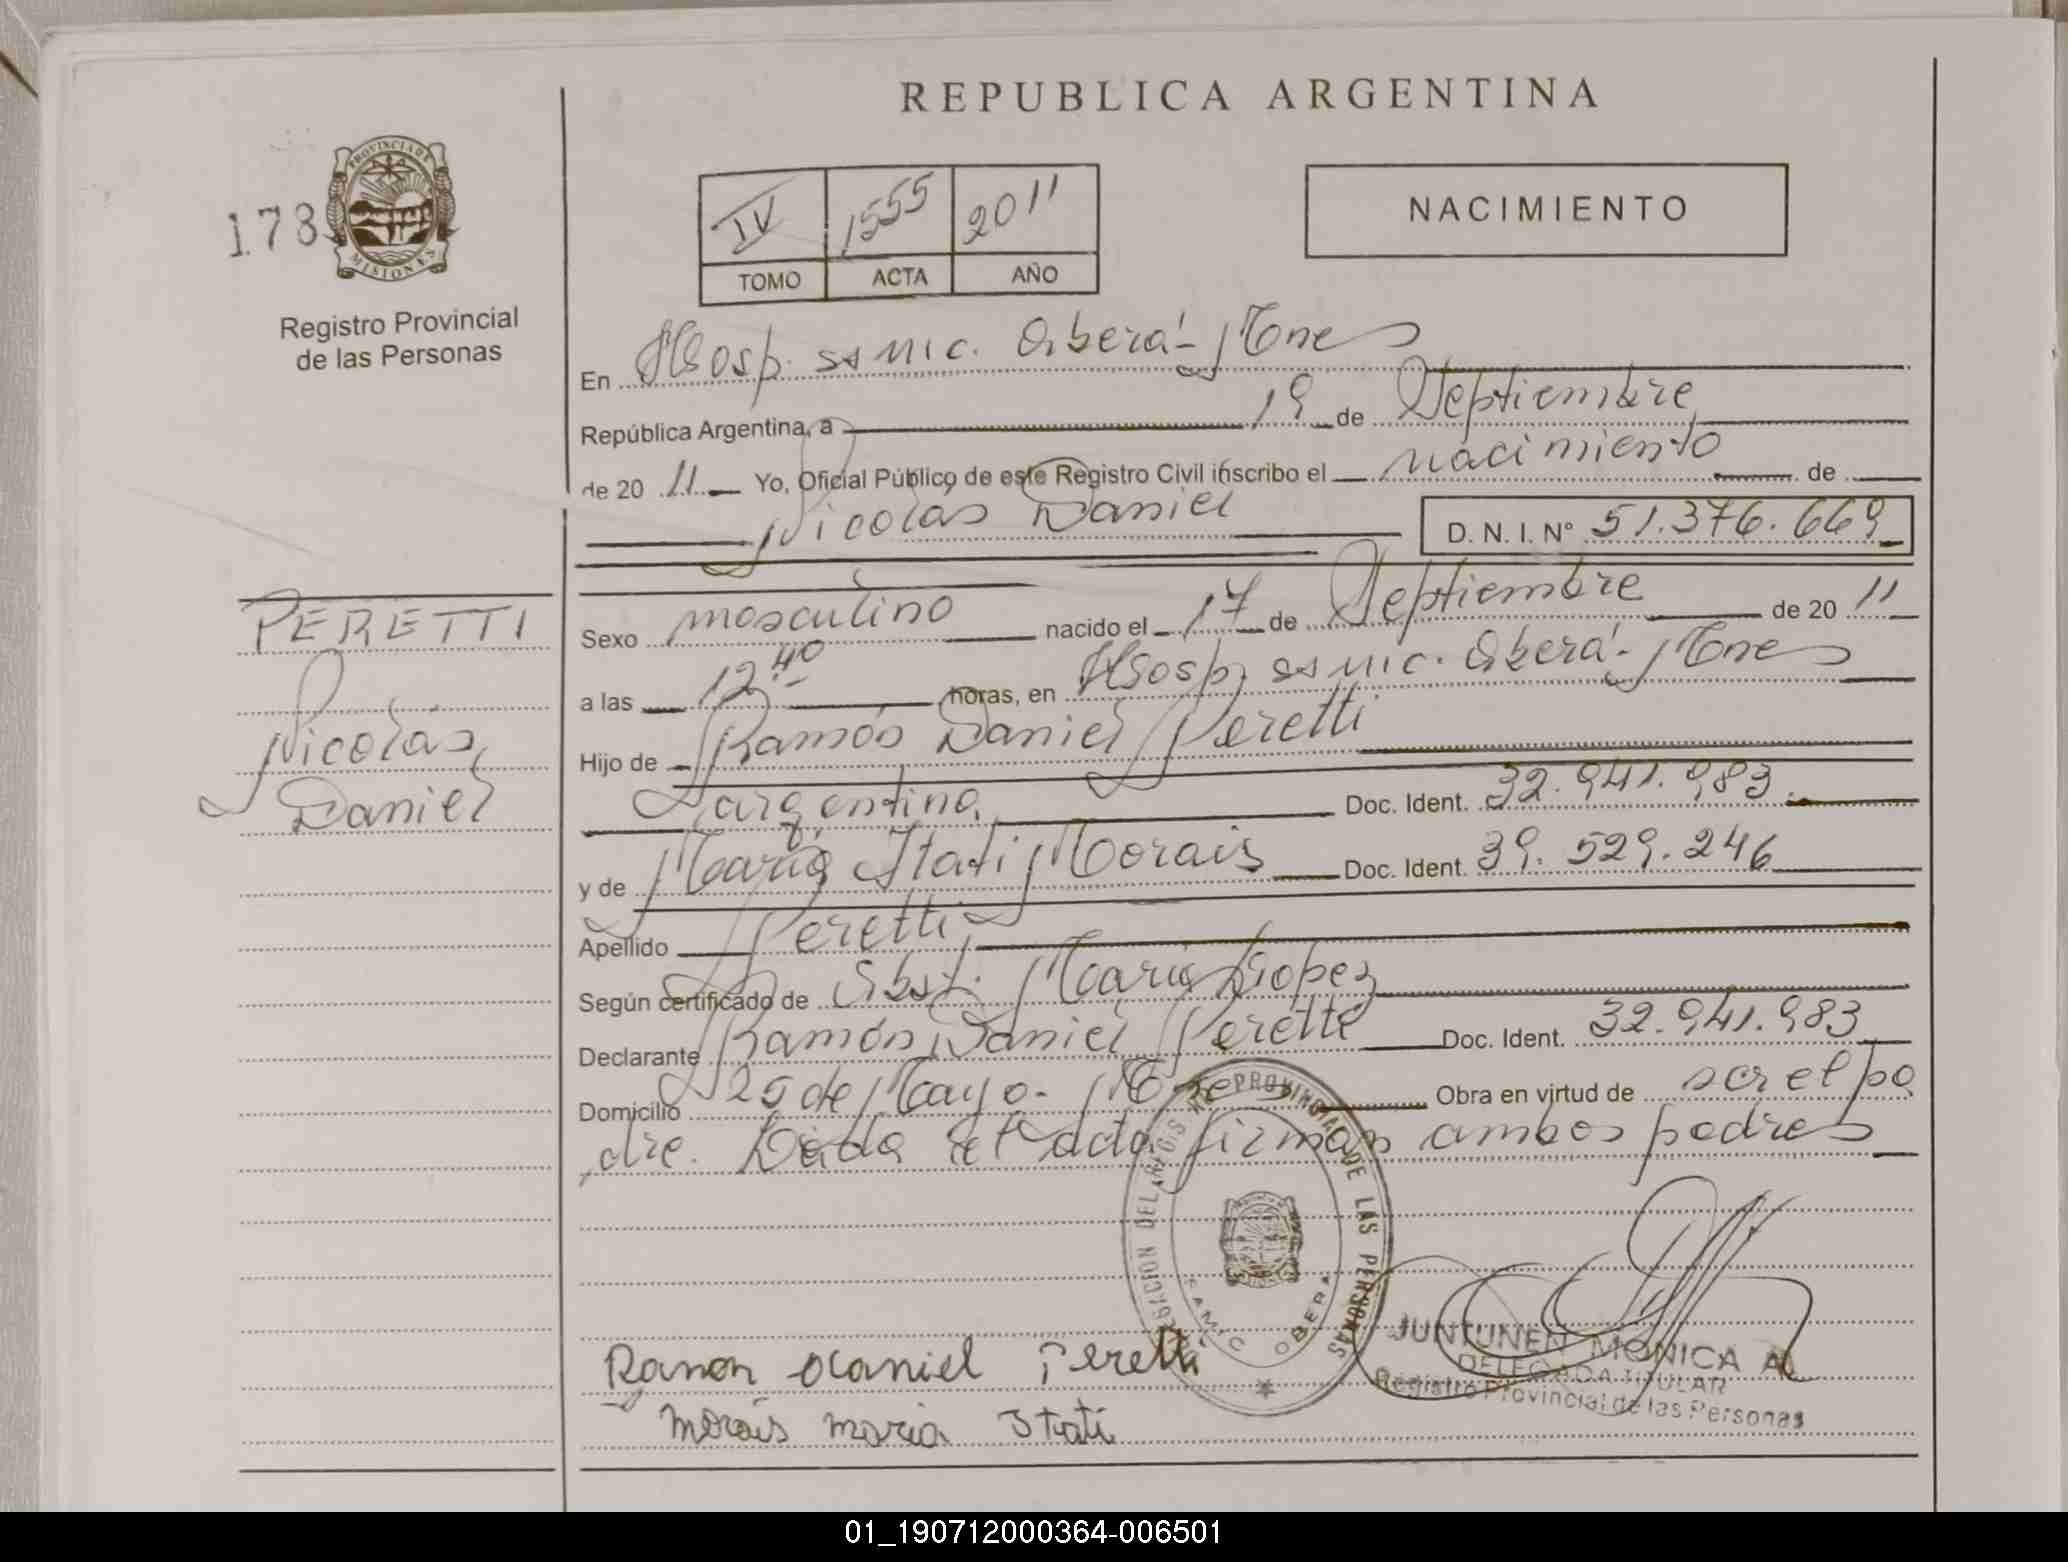 REPUBLICA ARGENTINA
178
PROVINCIA DE
MISIONES
Registro Provincial
de las Personas
IV 1555 2011
TOMO ACTA AÑO
NACIMIENTO
En Hosp. Samic. Oberá - Mnes
República Argentina, a 19 de Septiembre
de 20 11 Yo, Oficial Público de este Registro Civil inscribo el nacimiento de
Nicolás Daniel D. N. I. N° 51.376.669
PERETTI
Nicolás
Daniel
Sexo masculino nacido el 17 de Septiembre de 20 11
a las 12.40 horas, en Hosp. Samic. Oberá - Mnes
Hijo de Ramón Daniel Peretti
argentino Doc. Ident. 32.941.983
y de María Itati Morais Doc. Ident. 39.529.246
Apellido Peretti
Según certificado de Obst. María López
Declarante Ramón Daniel Peretti Doc. Ident. 32.941.983
Domicilio 25 de Mayo - Mnes Obra en virtud de ser el pa
dre. Leída el acta firman ambos padres
PROVINCIAL DE LAS PERSONAS
SAMIC OBERA
Ramon Daniel Peretti
Morais maria Itati
JUNTUNEN MONICA A.
DELEGADA TITULAR
Registro Provincial de las Personas
01_190712000364-006501